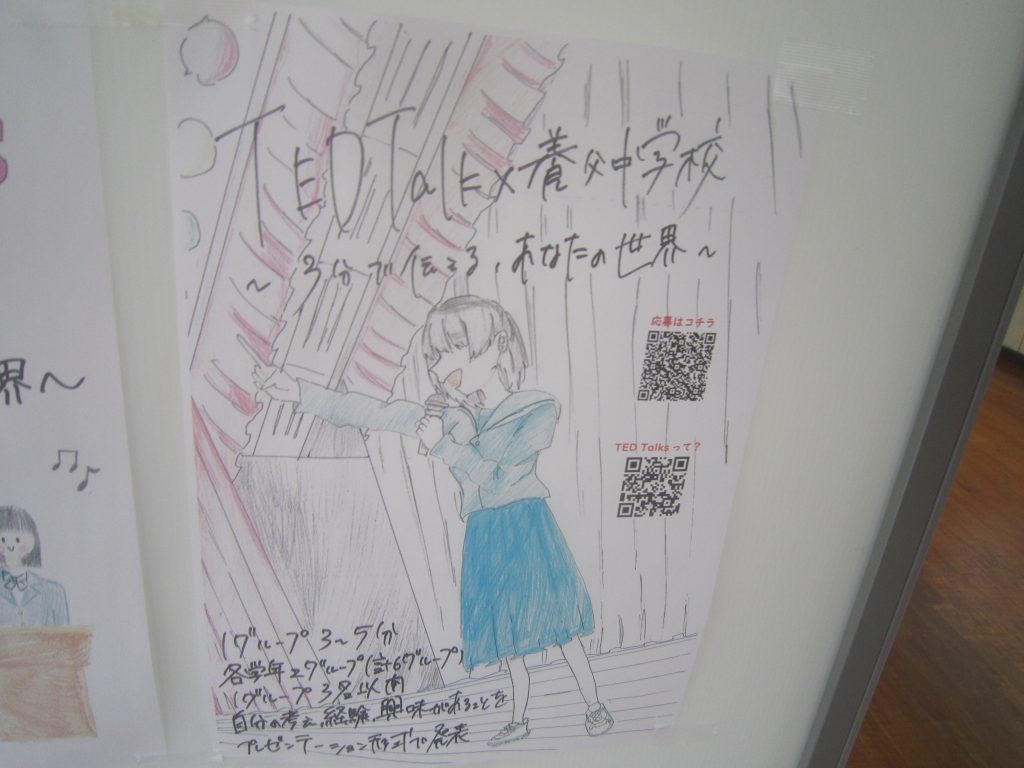 TEDTalk×養父中学校
～3分で伝える、あなたの世界～
応募はコチラ
TED Talksって？
1グループ 3～5分
各学年2グループ(計6グループ)
1グループ 3名以内
自分の考え、経験、興味があることを
プレゼンテーション形式で発表
界～